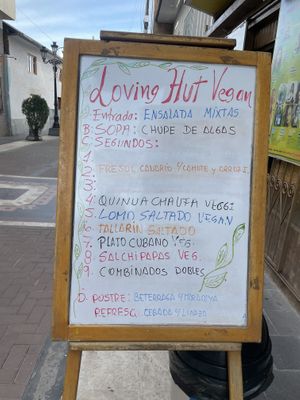 Loving Hut Vegan
A. Entrada: ENSALADA MIXTAS
B. SOPA: CHUPE DE ALGAS
C. SEGUNDOS:
1.
2. FRESOL CANARIO Y ARROZ
3.
4. QUINUA CHAUFA VEGGI
5. LOMO SALTADO VEGAN
6. TALLARIN SALTADO
7. PLATO CUBANO VEG.
8. SALCHIPAPAS VEG.
9. COMBINADOS DOBLES
D. POSTRE: BETERRAGA Y MORADIYA
REFRESC. CEBADA Y LINAZA